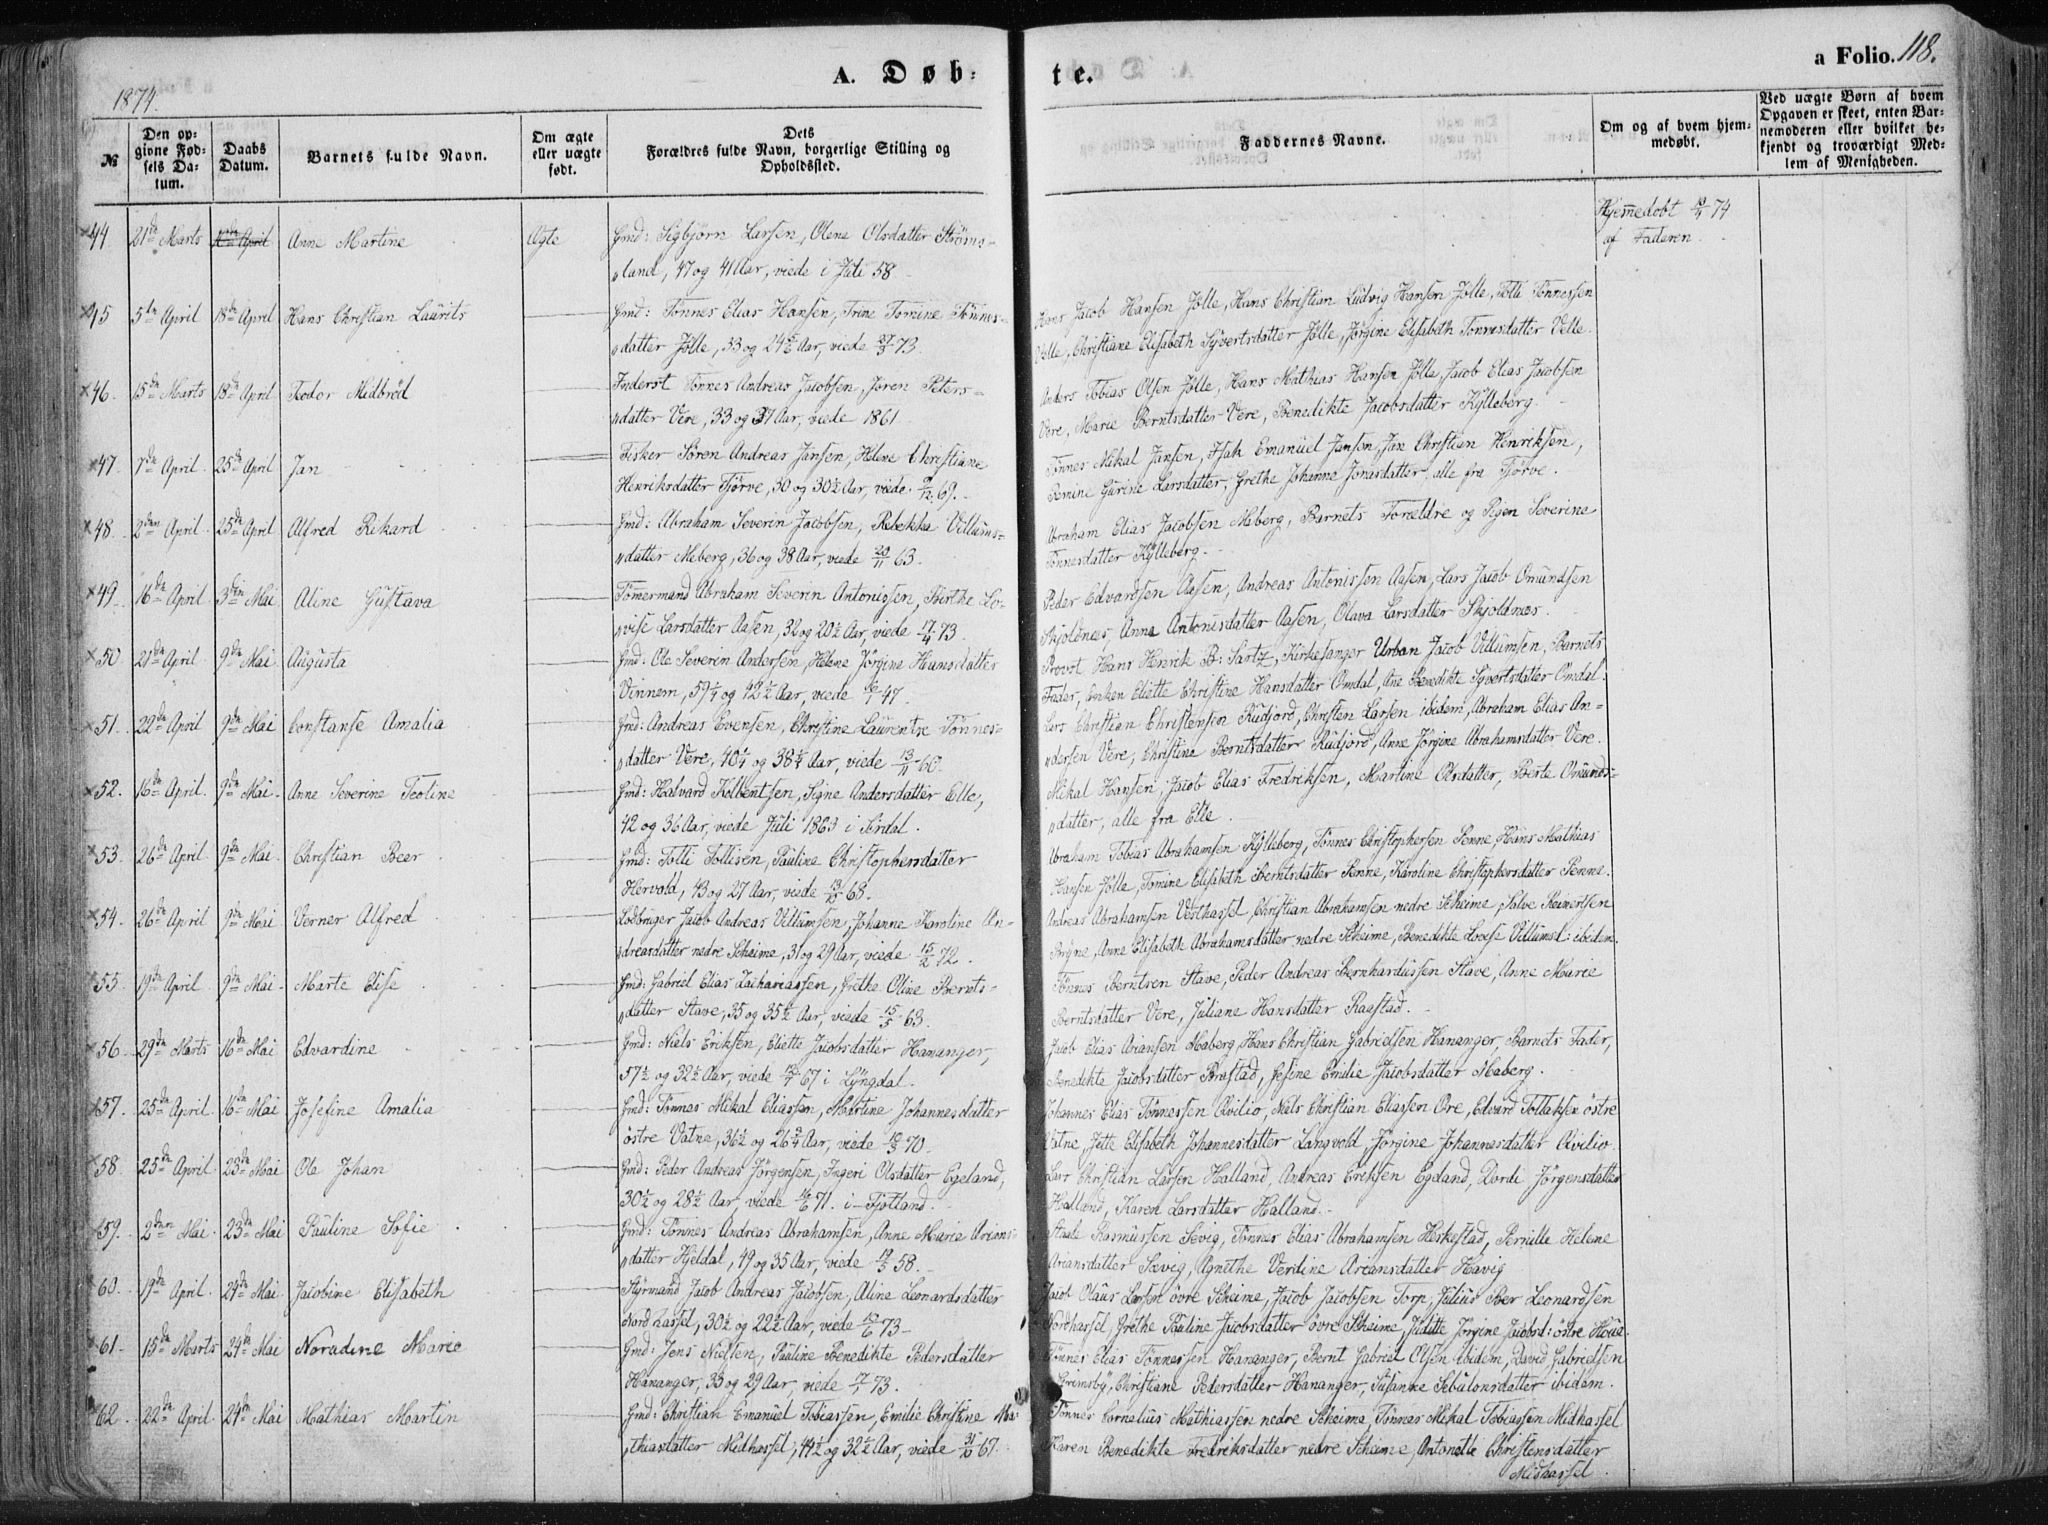 A. Døb-
te.
a Folio. 118.
1874.
№
Den op-
givne Fød-
sels Da-
tum.
Daabs
Datum.
Barnets fulde Navn.
Om ægte
eller uægte
født.
Dets
Forældres fulde Navn, borgerlige Stilling og
Opholdssted.
Faddernes Navne.
Om og af hvem hjem-
medøbt.
Ved uægte Børn af hvem
Opgaven er skeet, enten Bar-
nemoderen eller hvilket be-
kjendt og troværdigt Med-
lem af Menigheden.
44. 21de Marts April Anne Martine Ægte Gmd: Sigbjørn Larsen, Olene Olsdatter Strøms-
land, 47 og 41 Aar, viede i Juli 58
Hjemmedøbt 74
af Faderen
45 5te April 18de April Hans Christian Laurits Gmd: Tönnes Elias Hansen, Trine Tomine Tönnes-
datter Jölle, 33 og 24 Aar, viede 27/3 73.
Hans Jacob Hansen Jölle, Hans Christian Ludvig Hansen Jölle, Tolli Tönnessen
Velle, Christiane Elisabeth Syvertsdatter Jölle, Jørgine Elisabeth Tönnesdatter Velle.
46. 15de Marts 18de April Teodor Midbrød Inderst Tönnes Andreas Jacobsen, Jören Peters-
datter Vere, 33 og 37 Aar, viede 1861
Anders Tobias Olsen Jölle, Hans Mathias Hansen Jölle, Jacob Elias Jacobsen
Vere, Marie Berntsdatter Vere, Benedikte Jacobsdatter Kylleberg.
47. 7de April 25de April Jan Fisker Sören Andreas Jansen, Helene Christiane
Henriksdatter Tjörve, 30 og 30½ Aar, viede 69.
Tönnes Mikal Jansen, Isak Emanuel Jansen, Jan Christian Henriksen,
Gurine Larsdatter, Grethe Johanne Jonasdatter, alle fra Tjörve.
48. 2den April 25de April Alfred Rikard Gmd: Abraham Severin Jacobsen, Rebekka Villums-
datter Meberg, 36 og 38 Aar, viede 20/11 63.
Abraham Elias Jacobsen Meberg, Barnets Forældre og Pigen Severine
Tönnesdatter Kylleberg.
49. 16de April 3die Mai Aline Gustava Tömermand Abraham Severin Antonissen, Birthe Lo-
vise Larsdatter Aasen, 32 og 20½ Aar, viede 17/4 73.
Peder Edvardsen Aasen, Andreas Antonissen Aasen, Lars Jacob Omundsen
Skjoldnæs, Anna Antonisdatter Aasen, Olava Larsdatter Skjoldnæs.
50 21de April 9de Mai Augusta Gmd: Ole Severin Andersen, Helene Jörgine Hansdatter
Vinnem, og 42½ Aar, viede 47.
Provst Hans Henrik B: Sartz, Kirkesanger Urban Jacob Villumsen, Barnets
Fader, Enken Eliette Christine Hansdatter Omdal, Ane Benedikte Syvertsdatter Omdal.
51. 22de April 9de Mai Constanse Amalia Gmd: Andreas Evensen, Christine Laurentse Tönnes-
datter Vere, 40¼ og 38¼ Aar, viede 13/11 60.
Lars Christian Christensen Rudjord, Christen Larsen ibidem, Abraham Elias An-
dersen Vere, Christine Berntsdatter Rudjord, Anne Jörgine Abrahamsdatter Vere.
52. 16de April 9de Mai Anne Severine Teoline Gmd: Halvard Kolbentsen, Signe Andersdatter Elle,
42 og 36 Aar, viede Juli 1863 i Sirdal.
Mikal Hansen, Jacob Elias Fredriksen, Martine Olsdatter, Berte Omunds-
datter, alle fra Elle.
53. 26de April 9de Mai Christian Beer Gmd: Tolli Tollisen, Pauline Christophersdatter
Hervold, 43 og 27 Aar, viede 13/10 68.
Abraham Tobias Abrahamsen Kylleberg, Tönnes Christophersen Penne, Hans Mathias
Hansen Jölle, Tomine Elisabeth Berntsdatter Penne, Karoline Christophersdatter Penne.
54. 26de April 9de Mai Verner Alfred Lodbruger Jacob Andreas Villumsen, Johanne Karoline An-
dreasdatter nedre Skeime, 31 og 29 Aar, viede 15/2 72.
Andreas Abrahamsen Vesthassel, Christian Abrahamsen nedre Skeime, Salve Reinertsen
Bryne, Anne Elisabeth Abrahamsdatter nedre Skeime, Benedikte Lovise Villumsd: ibidem.
55. 19de April 9de Mai Marte Elise Gmd: Gabriel Elias Zachariassen, Grethe Oline Bernts-
datter Stave, 35 og 35½ Aar, viede 15/5 63.
Tönnes Berntsen Stave, Peder Andreas Bernhardussen Stave, Anne Marie
Berntsdatter Vere, Juliane Hansdatter Raastad.
56. 29de Marts 16de Mai Edvardine Gmd: Niels Eriksen, Eliette Jacobsdatter Hananger,
57½ og 32½ Aar, viede 67 i Lyngdal.
Jacob Elias Ariansen Maberg, Hans Christian Gabrielsen Hananger, Barnets Fader,
Benedikte Jacobsdatter Brastad, Gesine Emilie Jacobsdatter Maberg.
57. 25de April 16de Mai Josefine Amalia Gmd: Tönnes Mikal Eliassen, Martine Johannesdatter
östre Vatne, 36½ og 26¾ Aar, viede 70.
Johannes Elias Tönnessen Qvilio, Niels Christian Eliassen Ore, Edvard Tollaksen östre
Vatne, Jette Elisabeth Johannesdatter Langvold, Jörgine Johannesdatter Qvilio.
58. 25de April 23de Mai Ole Johan Gmd: Peder Andreas Jörgensen, Ingeri Olsdatter Egeland,
30½ og 28½ Aar, viede 71. i Fjotland.
Lars Christian Larsen Halland, Andreas Eriksen Egeland, Dordi Jörgensdatter
Halland, Karen Larsdatter Halland.
59. 2den Mai 23de Mai Pauline Sofie Gmd: Tönnes Andreas Abrahamsen, Anne Marie Arians-
datter Hjeldal, 49 og 35 Aar, viede 58.
Rasmussen Sevig, Tönnes Elias Abrahamsen Heskestad, Pernille Helene
Ariansdatter Sævig, Agnethe Verdine Ariansdatter Hævig
60. 19de April 24de Mai Jacobine Elisabeth Styrmand Jacob Andreas Jacobsen, Aline Leonardsdatter
Nordhassel, 30½ og 22½ Aar, viede 73
Jacob Olaus Larsen övre Skeime, Jacob Jacobsen Torp, Julius Ber Leonardsen
Nordhassel, Grethe Pauline Jacobsdatter övre Skeime, Juditte Jörgine Jacobsd: östre Houe.
61. 15de Marts 24de Mai Noradine Marie Gmd: Jens Nielsen, Pauline Benedikte Pedersdatter
Hananger, 33 og 29 Aar, viede 73.
Tönnes Elias Tönnessen Hananger, Bernt Gabriel Olsen ibidem, David Gabrielsen
Grimsby, Christiane Pedersdatter Hananger, Susanne Sebulonsdatter ibidem.
62. 22de April 24de Mai Mathias Martin Gmd: Christian Emanuel Tobiassen, Emilie Christine Ma-
thiasdatter Midhassel, 44½ og 32½ Aar, viede 31/10 67.
Tönnes Cornelius Mathiassen nedre Skeime, Tönnes Mikal Tobiassen Midhassel
Karen Benedikte Fredriksdatter nedre Skeime, Antonette Christensdatter
Midhassel.